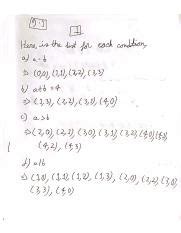 9.1
1
Here, is the list for each condition
a) a=b
⇒ (0,0), (1,1), (2,2), (3,3)
b) a+b=4
⇒ (1,3), (2,2), (3,1), (4,0)
c) a>b
⇒ (1,0), (2,0), (2,1), (3,0), (3,1), (3,2), (4,0), (4,1)
(4,2), (4,3)
d) a|b
⇒ (1,0), (1,1), (1,2), (1,3), (2,0), (2,2), (3,0)
(3,3), (4,0)